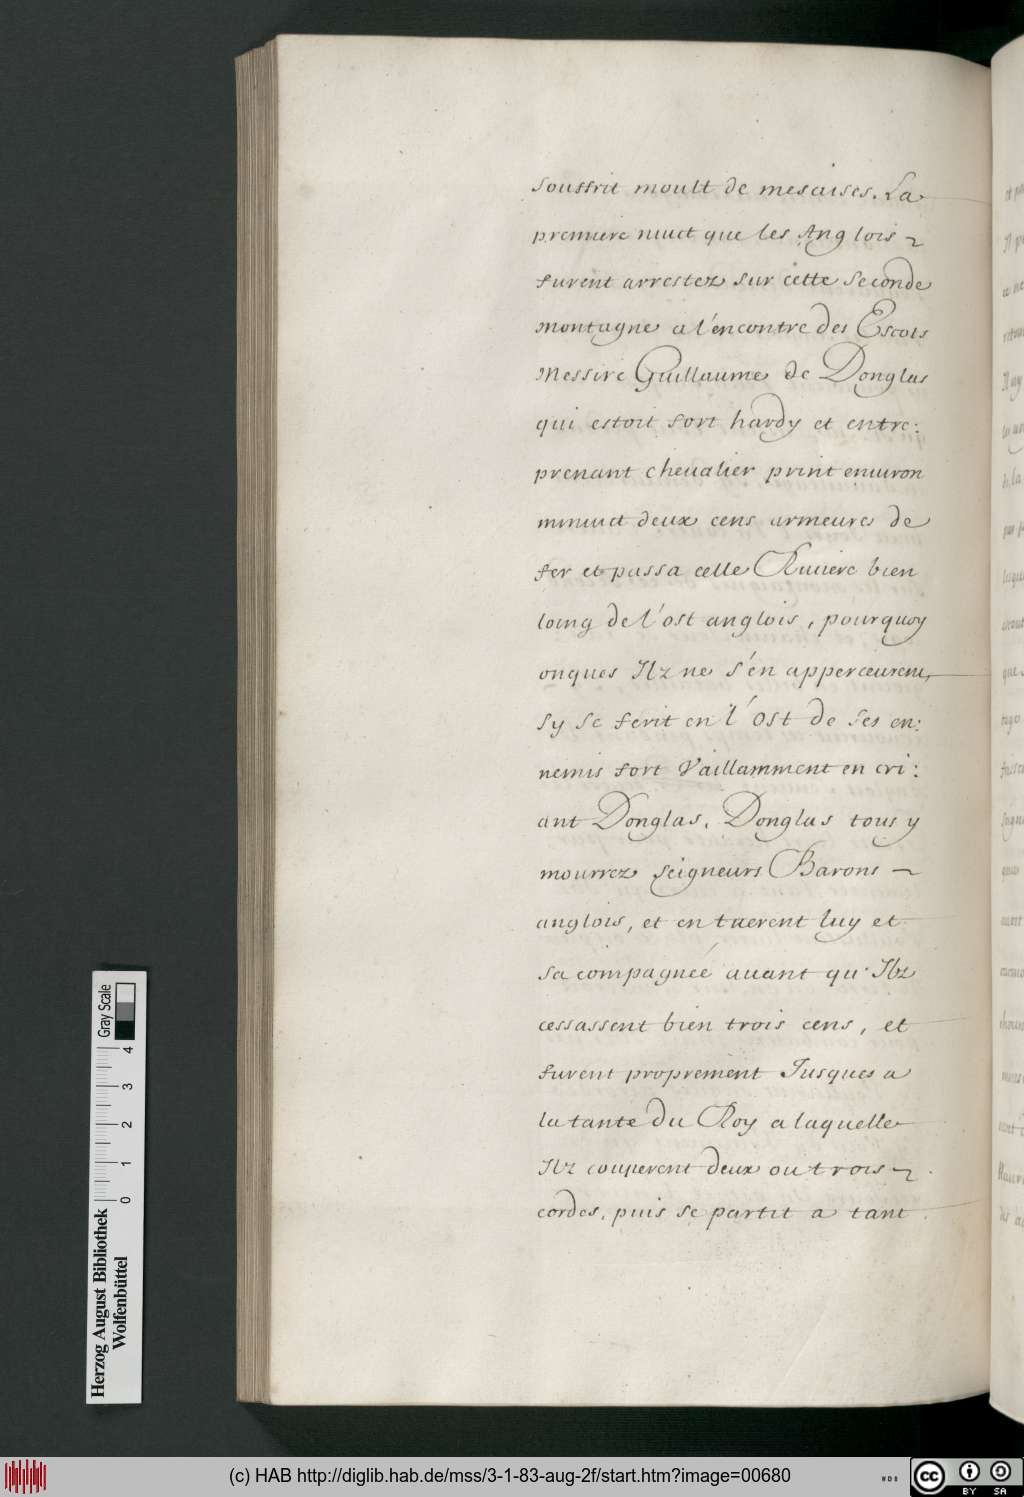 souffrit moult de mesaises. La
premiere nuict que les Anglois
furent arrestez sur cette seconde
montagne a l'encontre des Escois
Messire Guillaume de Donglas
qui estoit fort hardy et entre:
prenant chevalier print environ
minuict deux cens armeures de
fer et passa celle Riviere bien
loing de l'ost anglois, pourquoy
onques Ilz ne s'én apperceurent,
sy se ferit en l'ost de ses en:
nemis fort Vaillamment en cri:
ant Donglas, Donglas tous y
mourrez seigneurs Barons
anglois, et en tuerent luy et
sa compagnéé avant qu'Ilz
cessassent bien trois cens, et
furent proprement Jusques a
la tante du Roy a laquelle
Ilz couperent deux ou trois
cordes, puis se partit a tant
Gray Scale
0 1 2 3 4
Herzog August Bibliothek
Wolfenbüttel
(c) HAB http://diglib.hab.de/mss/3-1-83-aug-2f/start.htm?image=00680
WDB
cc
BY SA